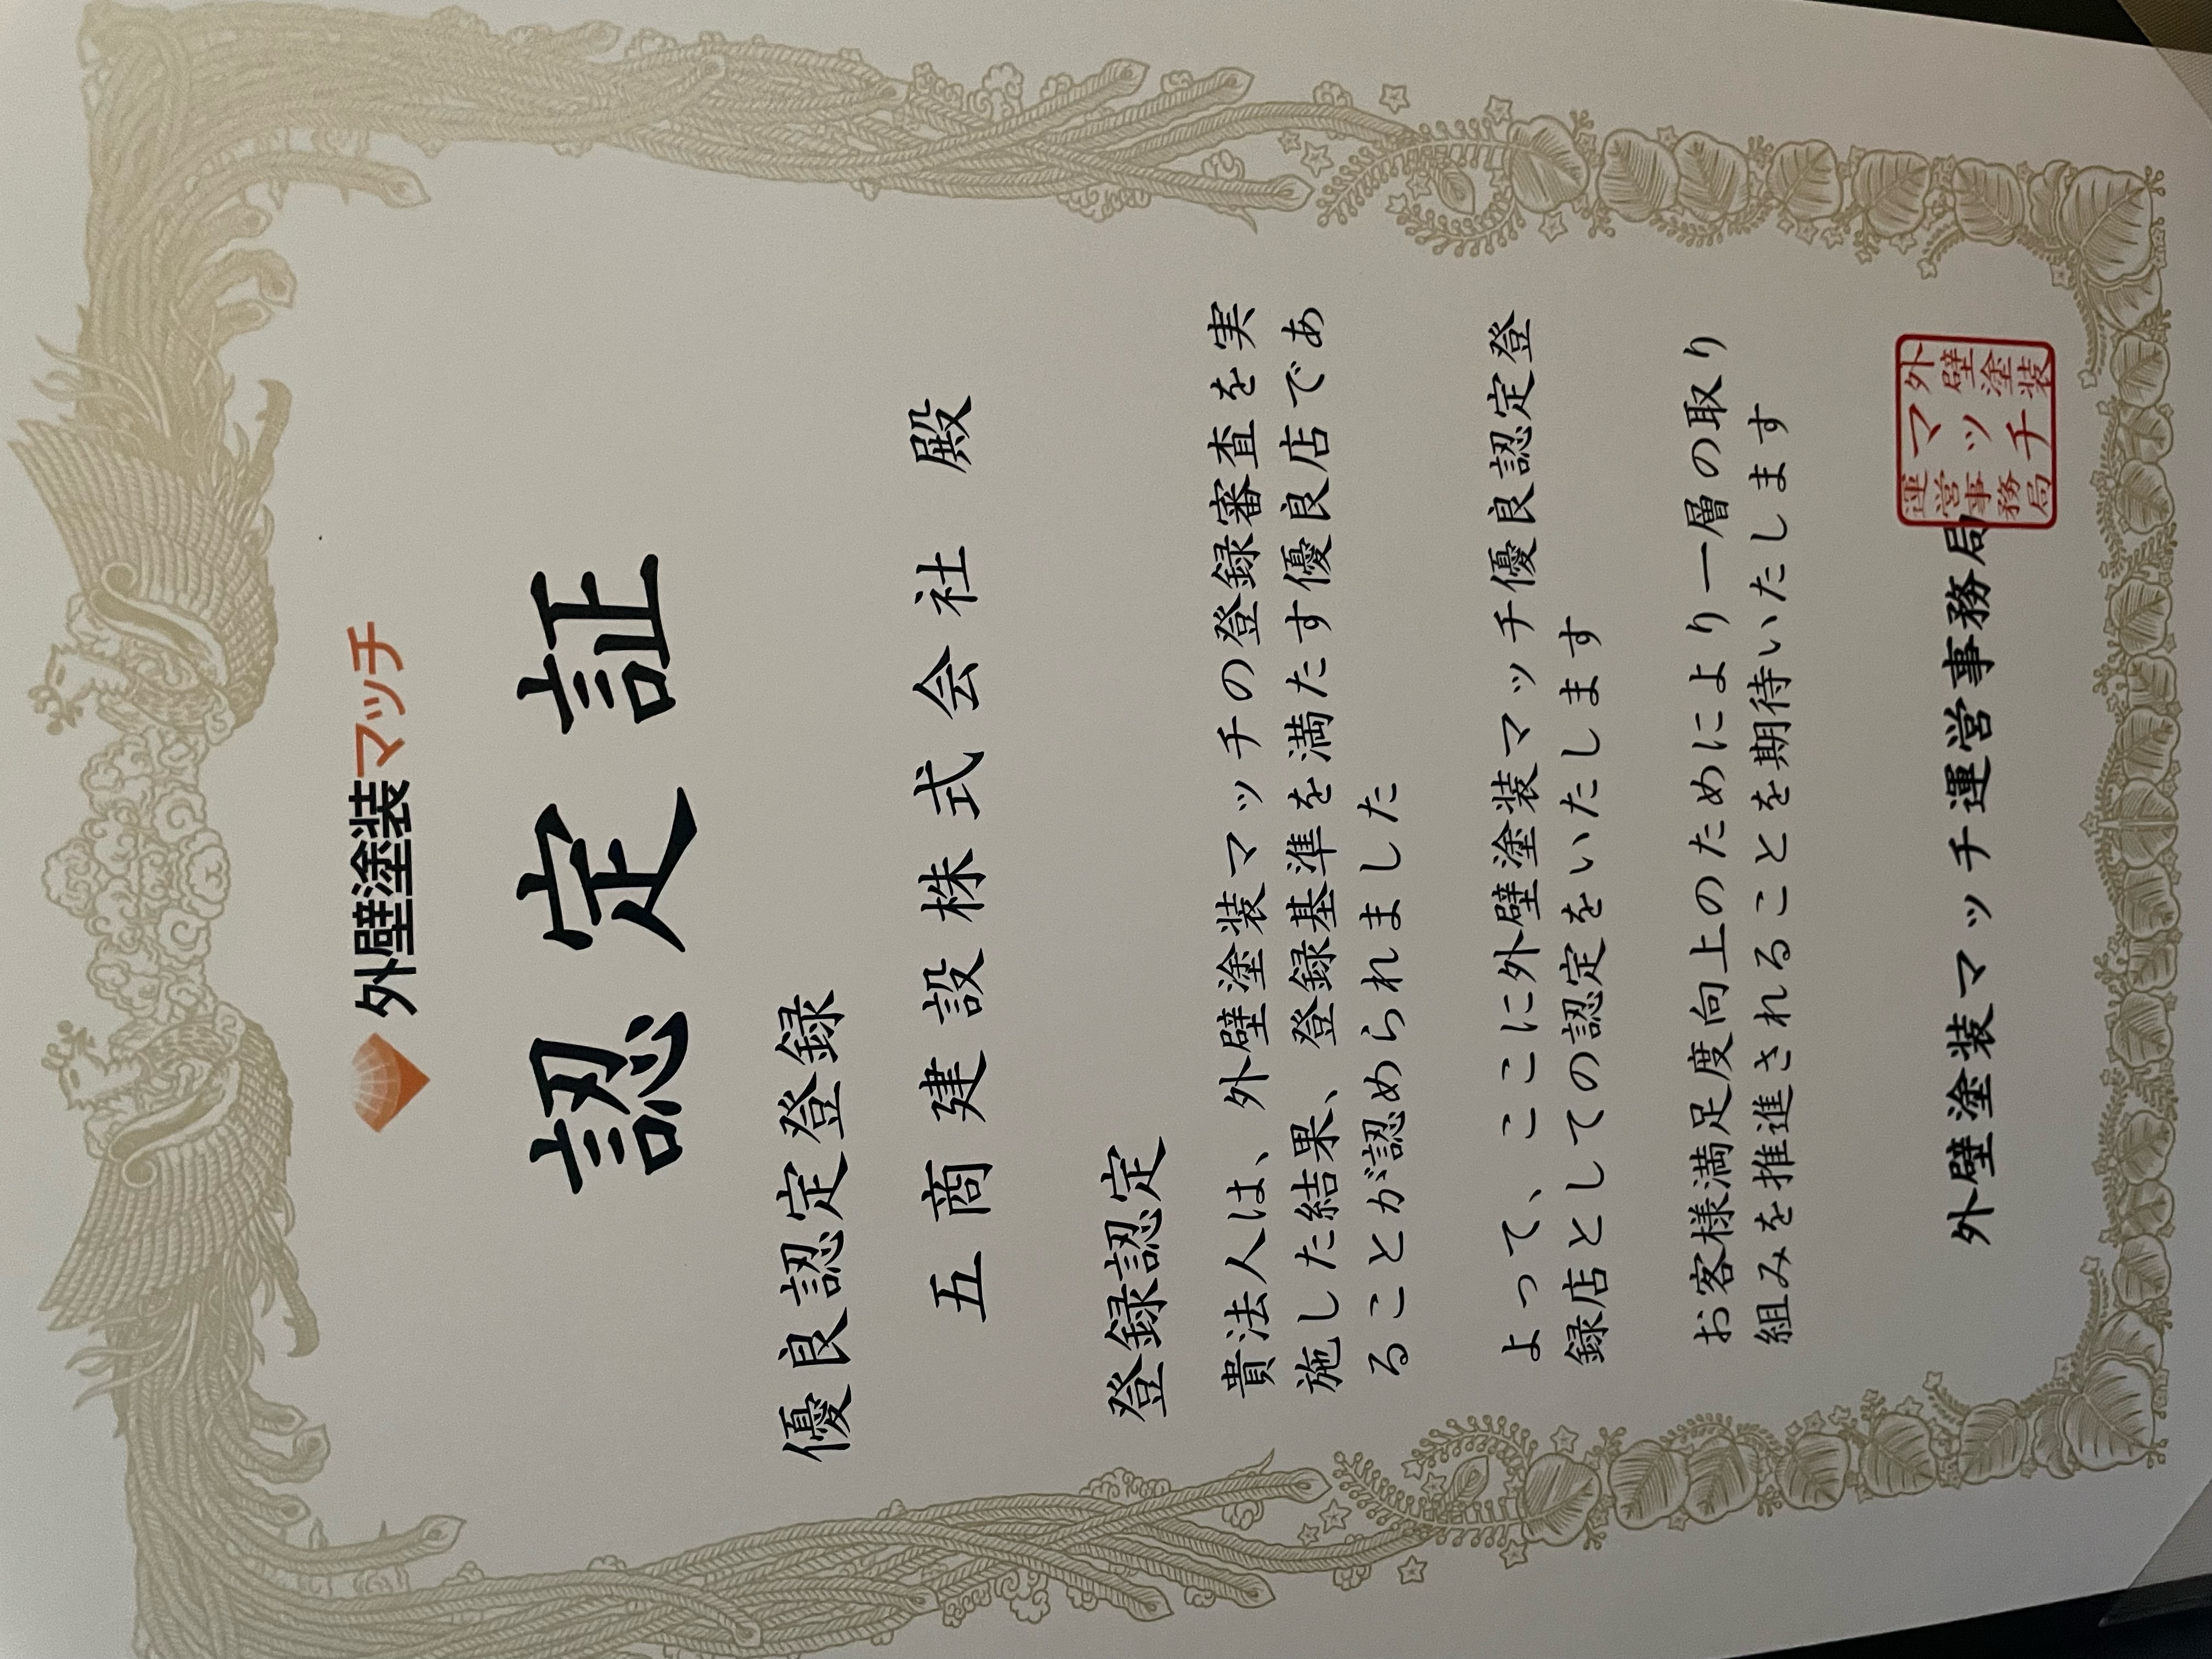 外壁塗装マッチ
認定証
優良認定登録
五商建設株式会社 殿
登録認定
貴法人は、外壁塗装マッチの登録審査を実
施した結果、登録基準を満たす優良店であ
ることが認められました
よって、ここに外壁塗装マッチ優良認定登
録店としての認定をいたします
お客様満足度向上のためにより一層の取り
組みを推進されることを期待いたします
外壁塗装マッチ運営事務局
外壁塗装
マッチ
運営事務局